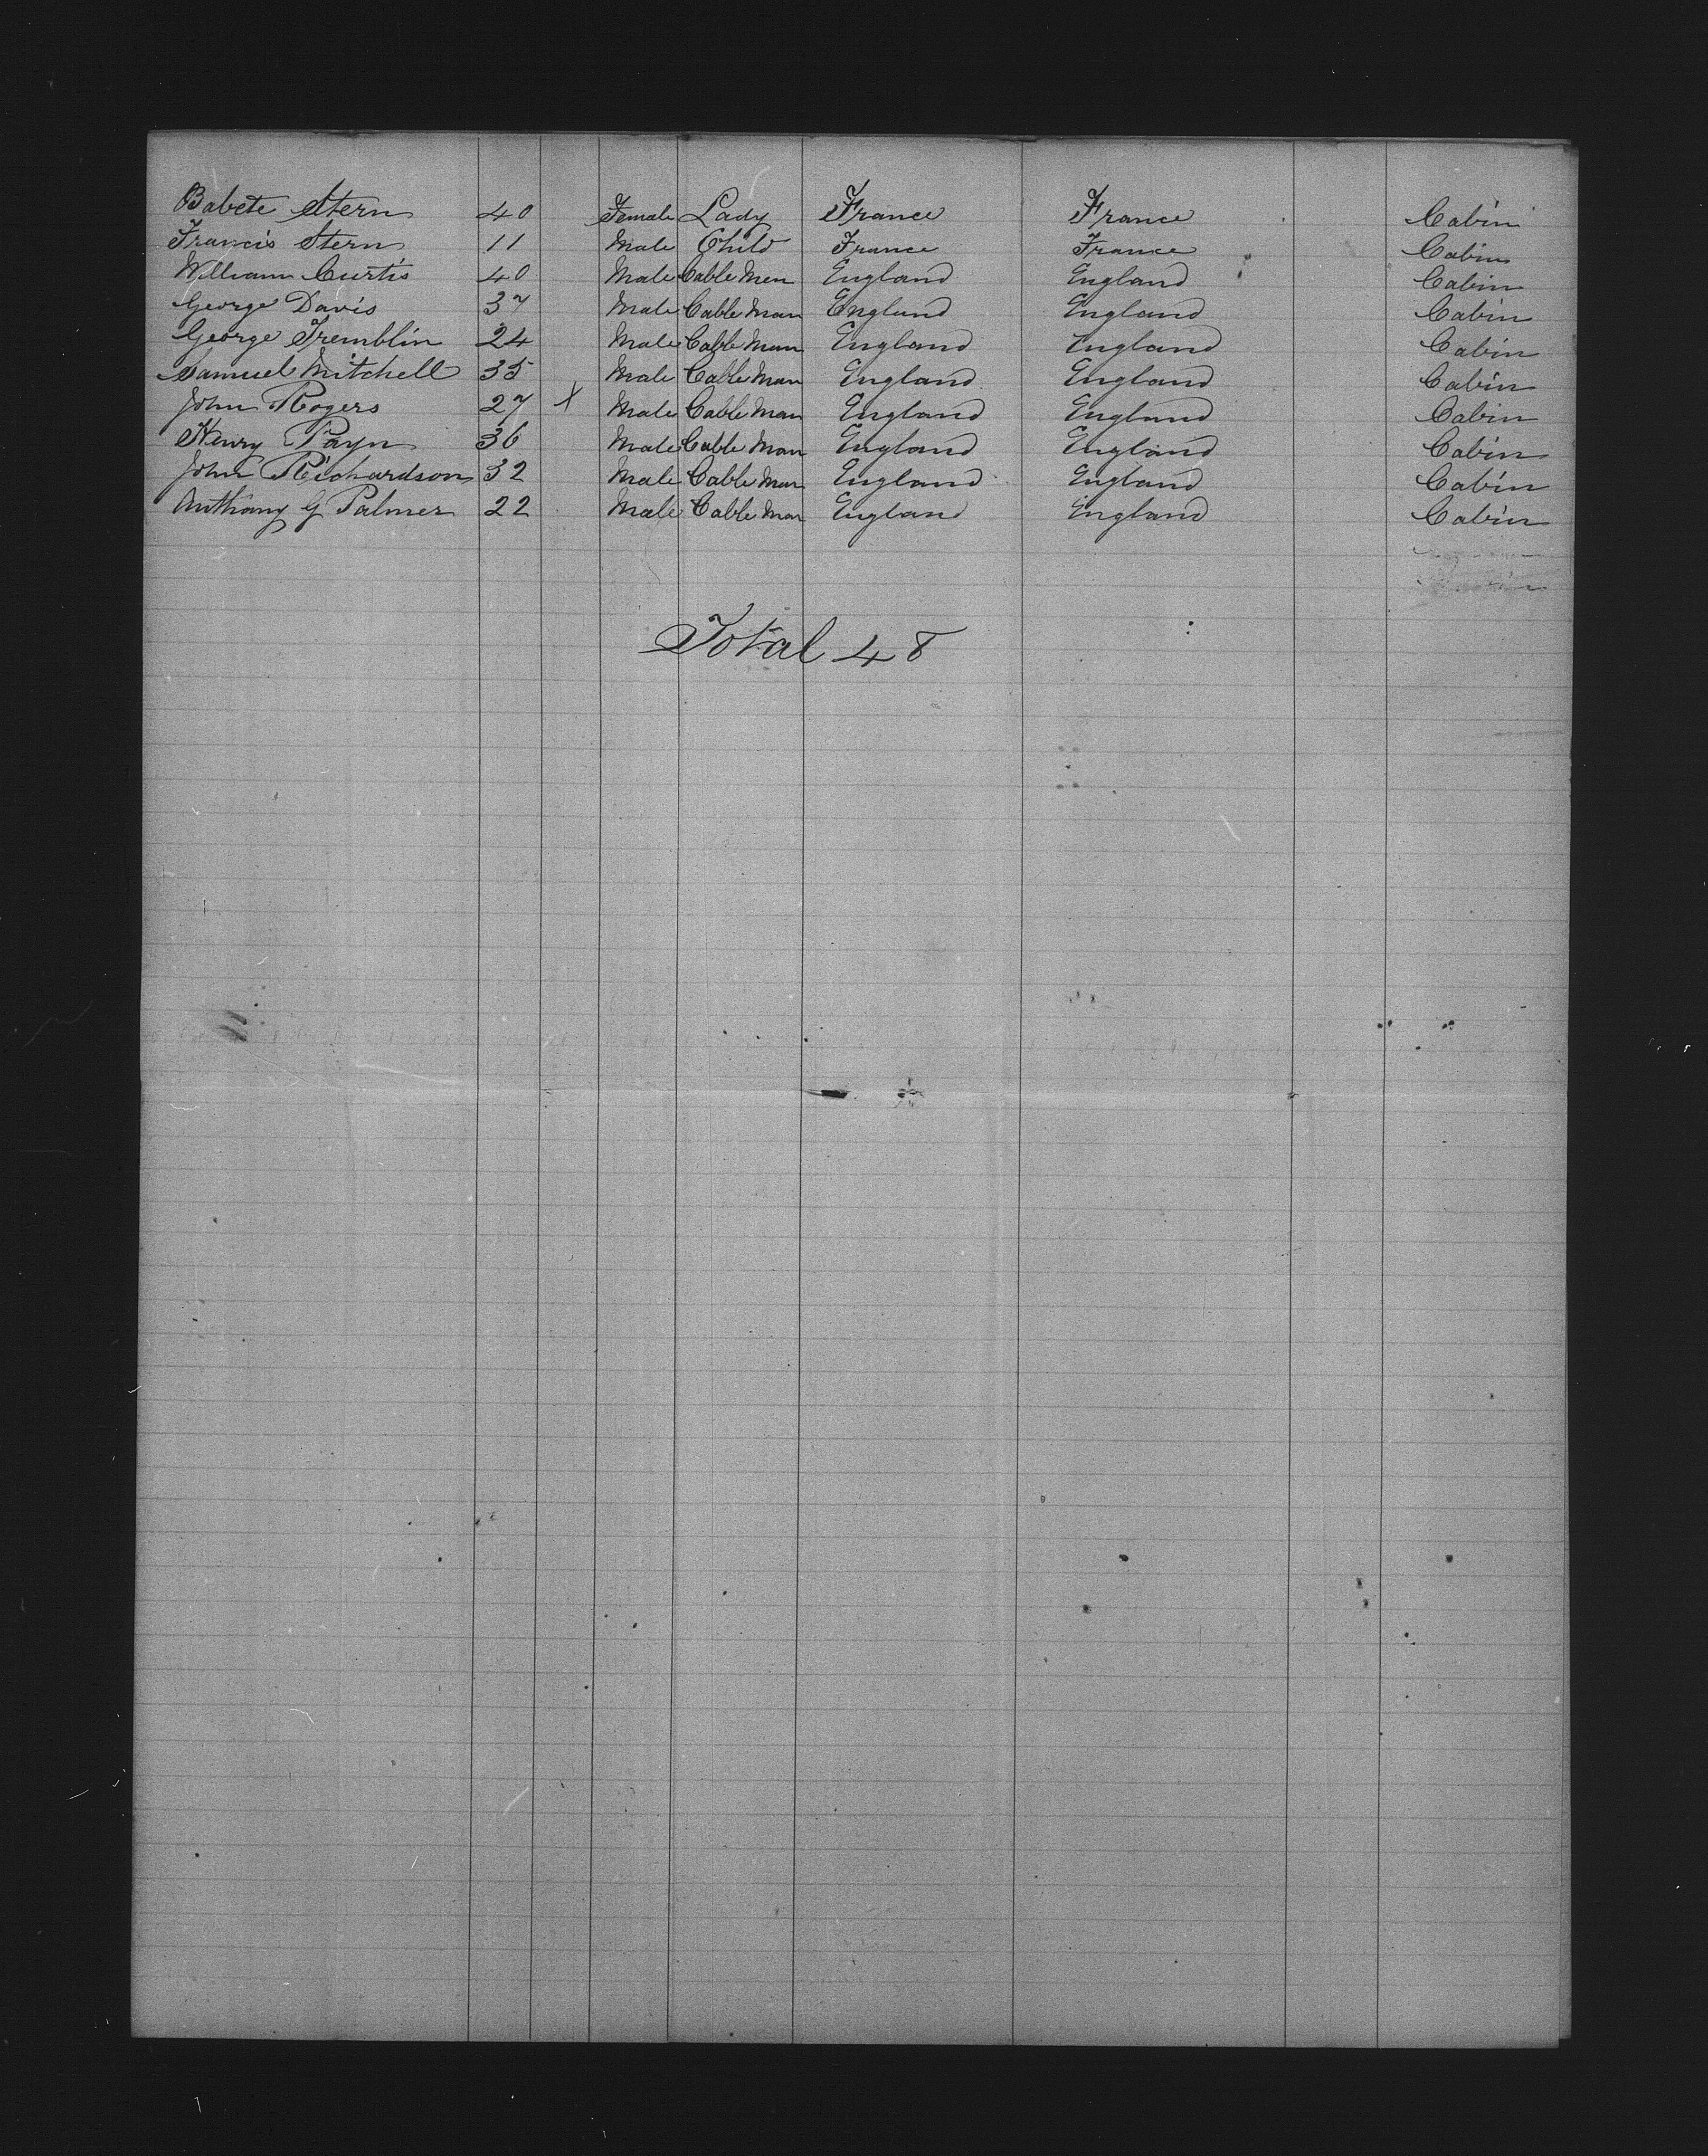 Babete Stern 40 Female Lady France France Cabin
Francis Stern 11 Male Child France France Cabin
William Curtis 40 Male Cable Men England England Cabin
George Davis 37 Male Cable Man England England Cabin
George Tremblin 24 Male Cable Man England England Cabin
Samuel Mitchell 35 Male Cable Man England England Cabin
John Rogers 27 X Male Cable Man England England Cabin
Henry Payn 36 Male Cable Man England England Cabin
John Richardson 32 Male Cable Man England England Cabin
Anthony G Palmer 22 Male Cable Man England England Cabin
Total 48